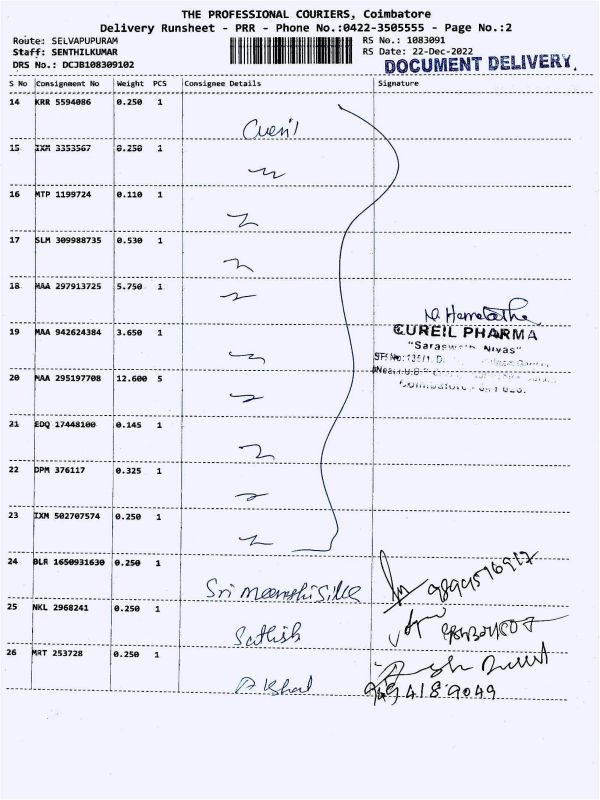 THE PROFESSIONAL COURIERS, Coimbatore
Delivery Runsheet - PRR - Phone No.:0422-3505555 - Page No.:2
Route: SELVAPUPURAM
RS No.: 1083091
Staff: SENTHILKUMAR
RS Date: 22-Dec-2022
DRS No.: DCJB108309102
DOCUMENT DELIVERY.
S No Consignment No Weight PCS Consignee Details Signature
14 KRR 5594086 0.250 1
Cureil
15 IXM 3353567 0.250 1
16 MTP 1199724 0.110 1
17 SLM 309988735 0.530 1
18 MAA 297913725 5.750 1
N. Hemalatha
19 MAA 942624384 3.650 1
CUREIL PHARMA
"Saraswath Nivas"
SF No: 135/1,
20 MAA 295197708 12.600 5
Coimbatore
21 EDQ 17448100 0.145 1
22 DPM 376117 0.325 1
23 IXM 502707574 0.250 1
24 BLR 1650931630 0.250 1
Sri Meenshi Silks
25 NKL 2968241 0.250 1
Sathish
26 MRT 253728 0.250 1